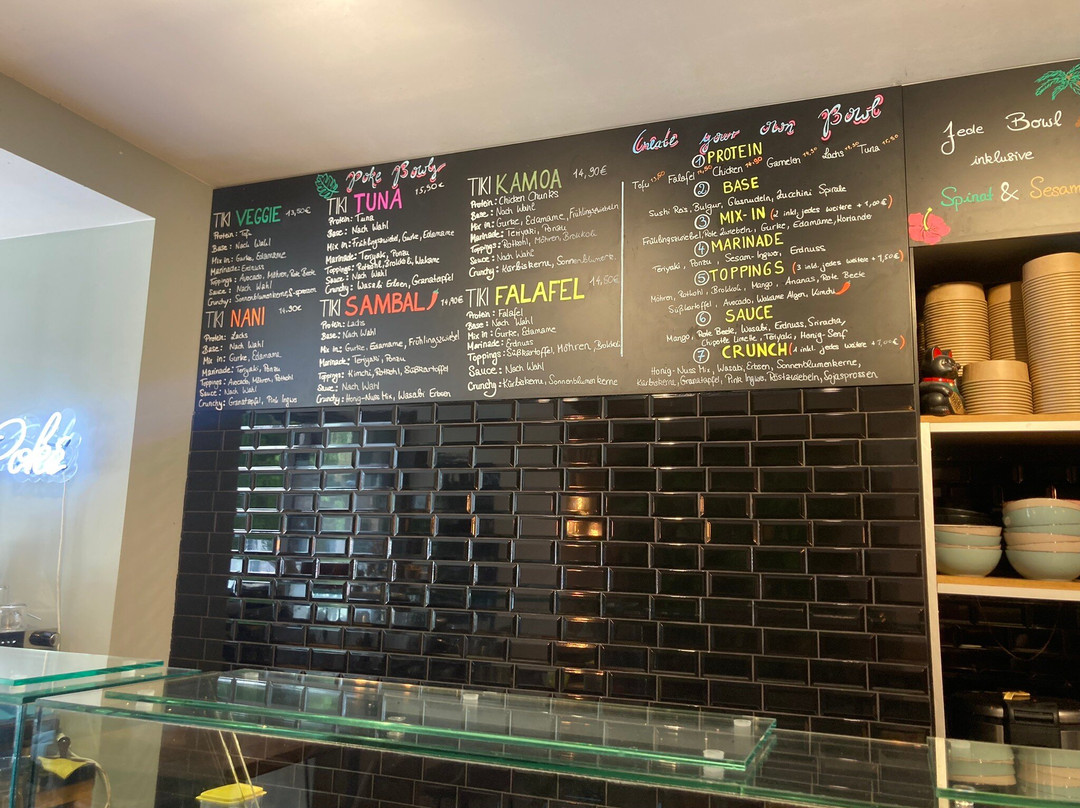 Poké
Poke Bowls
TIKI VEGGIE 13,50€
Protein: Tofu
Base: Nach Wahl
Mix in: Gurke, Edamame
Marinade: Erdnuss
Toppings: Avocado, Möhren, Rote Beete
Sauce: Nach Wahl
Crunchy: Sonnenblumenkerne,
TIKI NANI 14,90€
Protein: Lachs
Base: Nach Wahl
Mix in: Gurke, Edamame
Marinade: Teriyaki, Ponzu
Toppings: Avocado, Möhren, Rotkohl
Sauce: Nach Wahl
Crunchy: Granatapfel, Pink Ingwer
TIKI TUNA 15,50€
Protein: Tuna
Base: Nach Wahl
Mix in: Frühlingszwiebel, Gurke, Edamame
Marinade: Teriyaki, Ponzu
Toppings: Rotkohl, Brokkoli, Wakame
Sauce: Nach Wahl
Crunchy: Wasabi Erbsen, Granatapfel
TIKI SAMBAL 14,90€
Protein: Lachs
Base: Nach Wahl
Mix in: Gurke, Edamame, Frühlingszwiebel
Marinade: Teriyaki, Ponzu
Toppings: Kimchi, Rotkohl, Süßkartoffel
Sauce: Nach Wahl
Crunchy: Honig-Nuss Mix, Wasabi Erbsen
TIKI KAMOA 14,90€
Protein: Chicken Chunks
Base: Nach Wahl
Mix in: Gurke, Edamame, Frühlingszwiebeln
Marinade: Teriyaki, Ponzu
Toppings: Rotkohl, Möhren, Brokkoli
Sauce: Nach Wahl
Crunchy: Kürbiskerne, Sonnenblumenkerne
TIKI FALAFEL 14,50€
Protein: Falafel
Base: Nach Wahl
Mix in: Gurke, Edamame
Marinade: Erdnuss
Toppings: Süßkartoffel, Möhren,
Sauce: Nach Wahl
Crunchy: Kürbiskerne, Sonnenblumenkerne
Create your own Bowl
1 PROTEIN
Tofu 13,50 Falafel 14,50 Chicken Garnelen Lachs Tuna
2 BASE
Sushi Reis, Bulgur, Glasnudeln, Zucchini Spirale
3 MIX-IN (2 inkl. jedes weitere + 1,00€)
Frühlingszwiebel, Rote Zwiebeln, Gurke, Edamame, Koriander
4 MARINADE
Teriyaki, Ponzu, Sesam-Ingwer, Erdnuss
5 TOPPINGS (3 inkl. jedes weitere + 1,60€)
Möhren, Rotkohl, Brokkoli, Mango, Ananas, Rote Beete
Süßkartoffel, Avocado, Wakame Algen, Kimchi
6 SAUCE
Mango, Rote Beete, Wasabi, Erdnuss, Sriracha,
Chipotle Limette, Teriyaki, Honig-Senf
7 CRUNCH (2 inkl. jedes weitere + 1,00€)
Honig-Nuss Mix, Wasabi Erbsen, Sonnenblumenkerne,
Kürbiskerne, Granatapfel, Pink Ingwer, Röstzwiebeln, Sojasprossen
Jede Bowl
inklusive
Spinat & Sesam